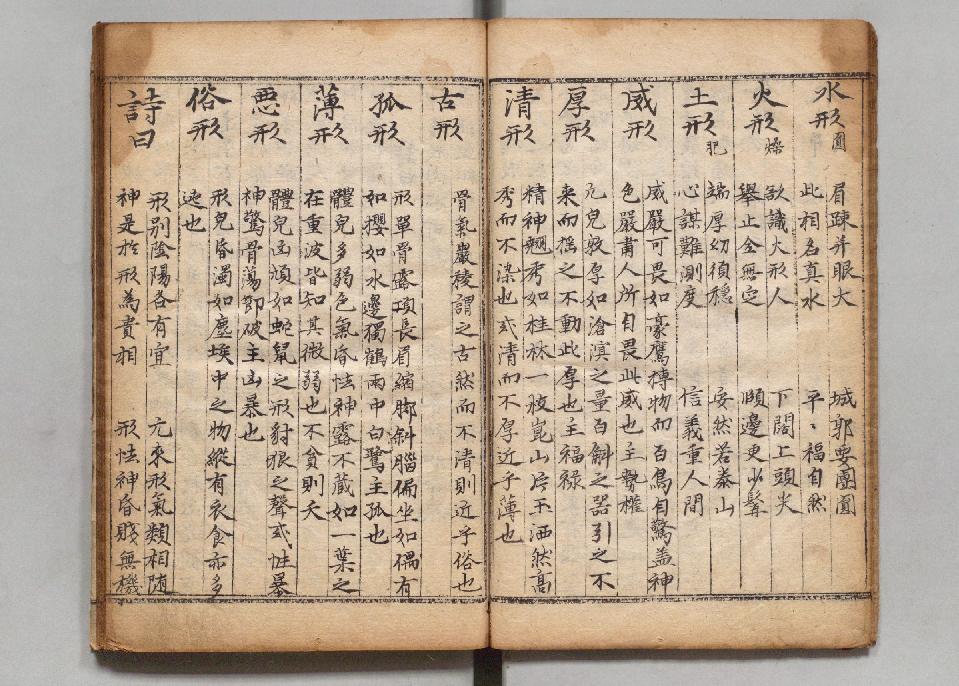 水形 圓
眉疎并眼大 城郭要團圓
此相名真水 平〻福自然
火形 燥
欲識火形人 下闊上頭尖
舉止全無定 頤邊更少髯
土形 肥
端厚幼須穩 安然若泰山
心謀難測度 信義重人間
威形
威嚴可畏如豪鷹搏物而百鳥自驚盖神
色嚴肅人所自畏此威也主勢權
厚形
凡皃敦厚如滄溟之量百斛之器引之不
来而搖之不動此厚也主福禄
清形
精神翹秀如桂林一枝崑山片玉洒然高
秀而不染也或清而不厚近乎薄也
古形
骨氣嚴稜謂之古然而不清則近乎俗也
孤形
形單骨露項長眉縮脚斜腦偏坐如偶有
如攖如水邊獨鶴雨中白鷺主孤也
薄形
體皃多弱色氣昏怯神露不蔵如一葉之
在重波皆知其微弱也不貧則夭
悪形
體皃凶頑如蛇鼠之形豺狼之聲或性暴
神驚骨蕩節破主凶暴也
俗形
形皃昏濁如塵埃中之物縱有衣食亦多
迍也
詩曰
形別陰陽各有宜 元來形氣類相随
神是於形為貴相 形怯神昏賤無機